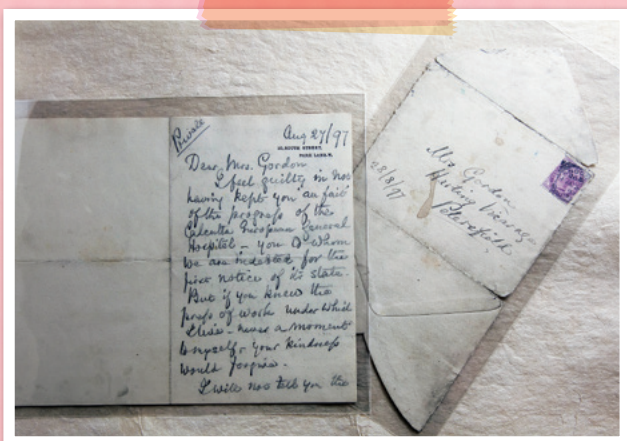 Private
Aug 27/97
STREET,
PARK LANE, W.
Dear Mrs. Gordon
I feel guilty in not
having kept you au fait
of the progress of the
Calcutta General
Hospital – you to whom
we are indebted for the
first notice of its state.
But if you knew the
press of work under which
I live – never a moment
to myself – your kindness
would forgive.
I will not tell you the
Mrs Gordon
Harting Vicarage
Petersfield
28/8/97